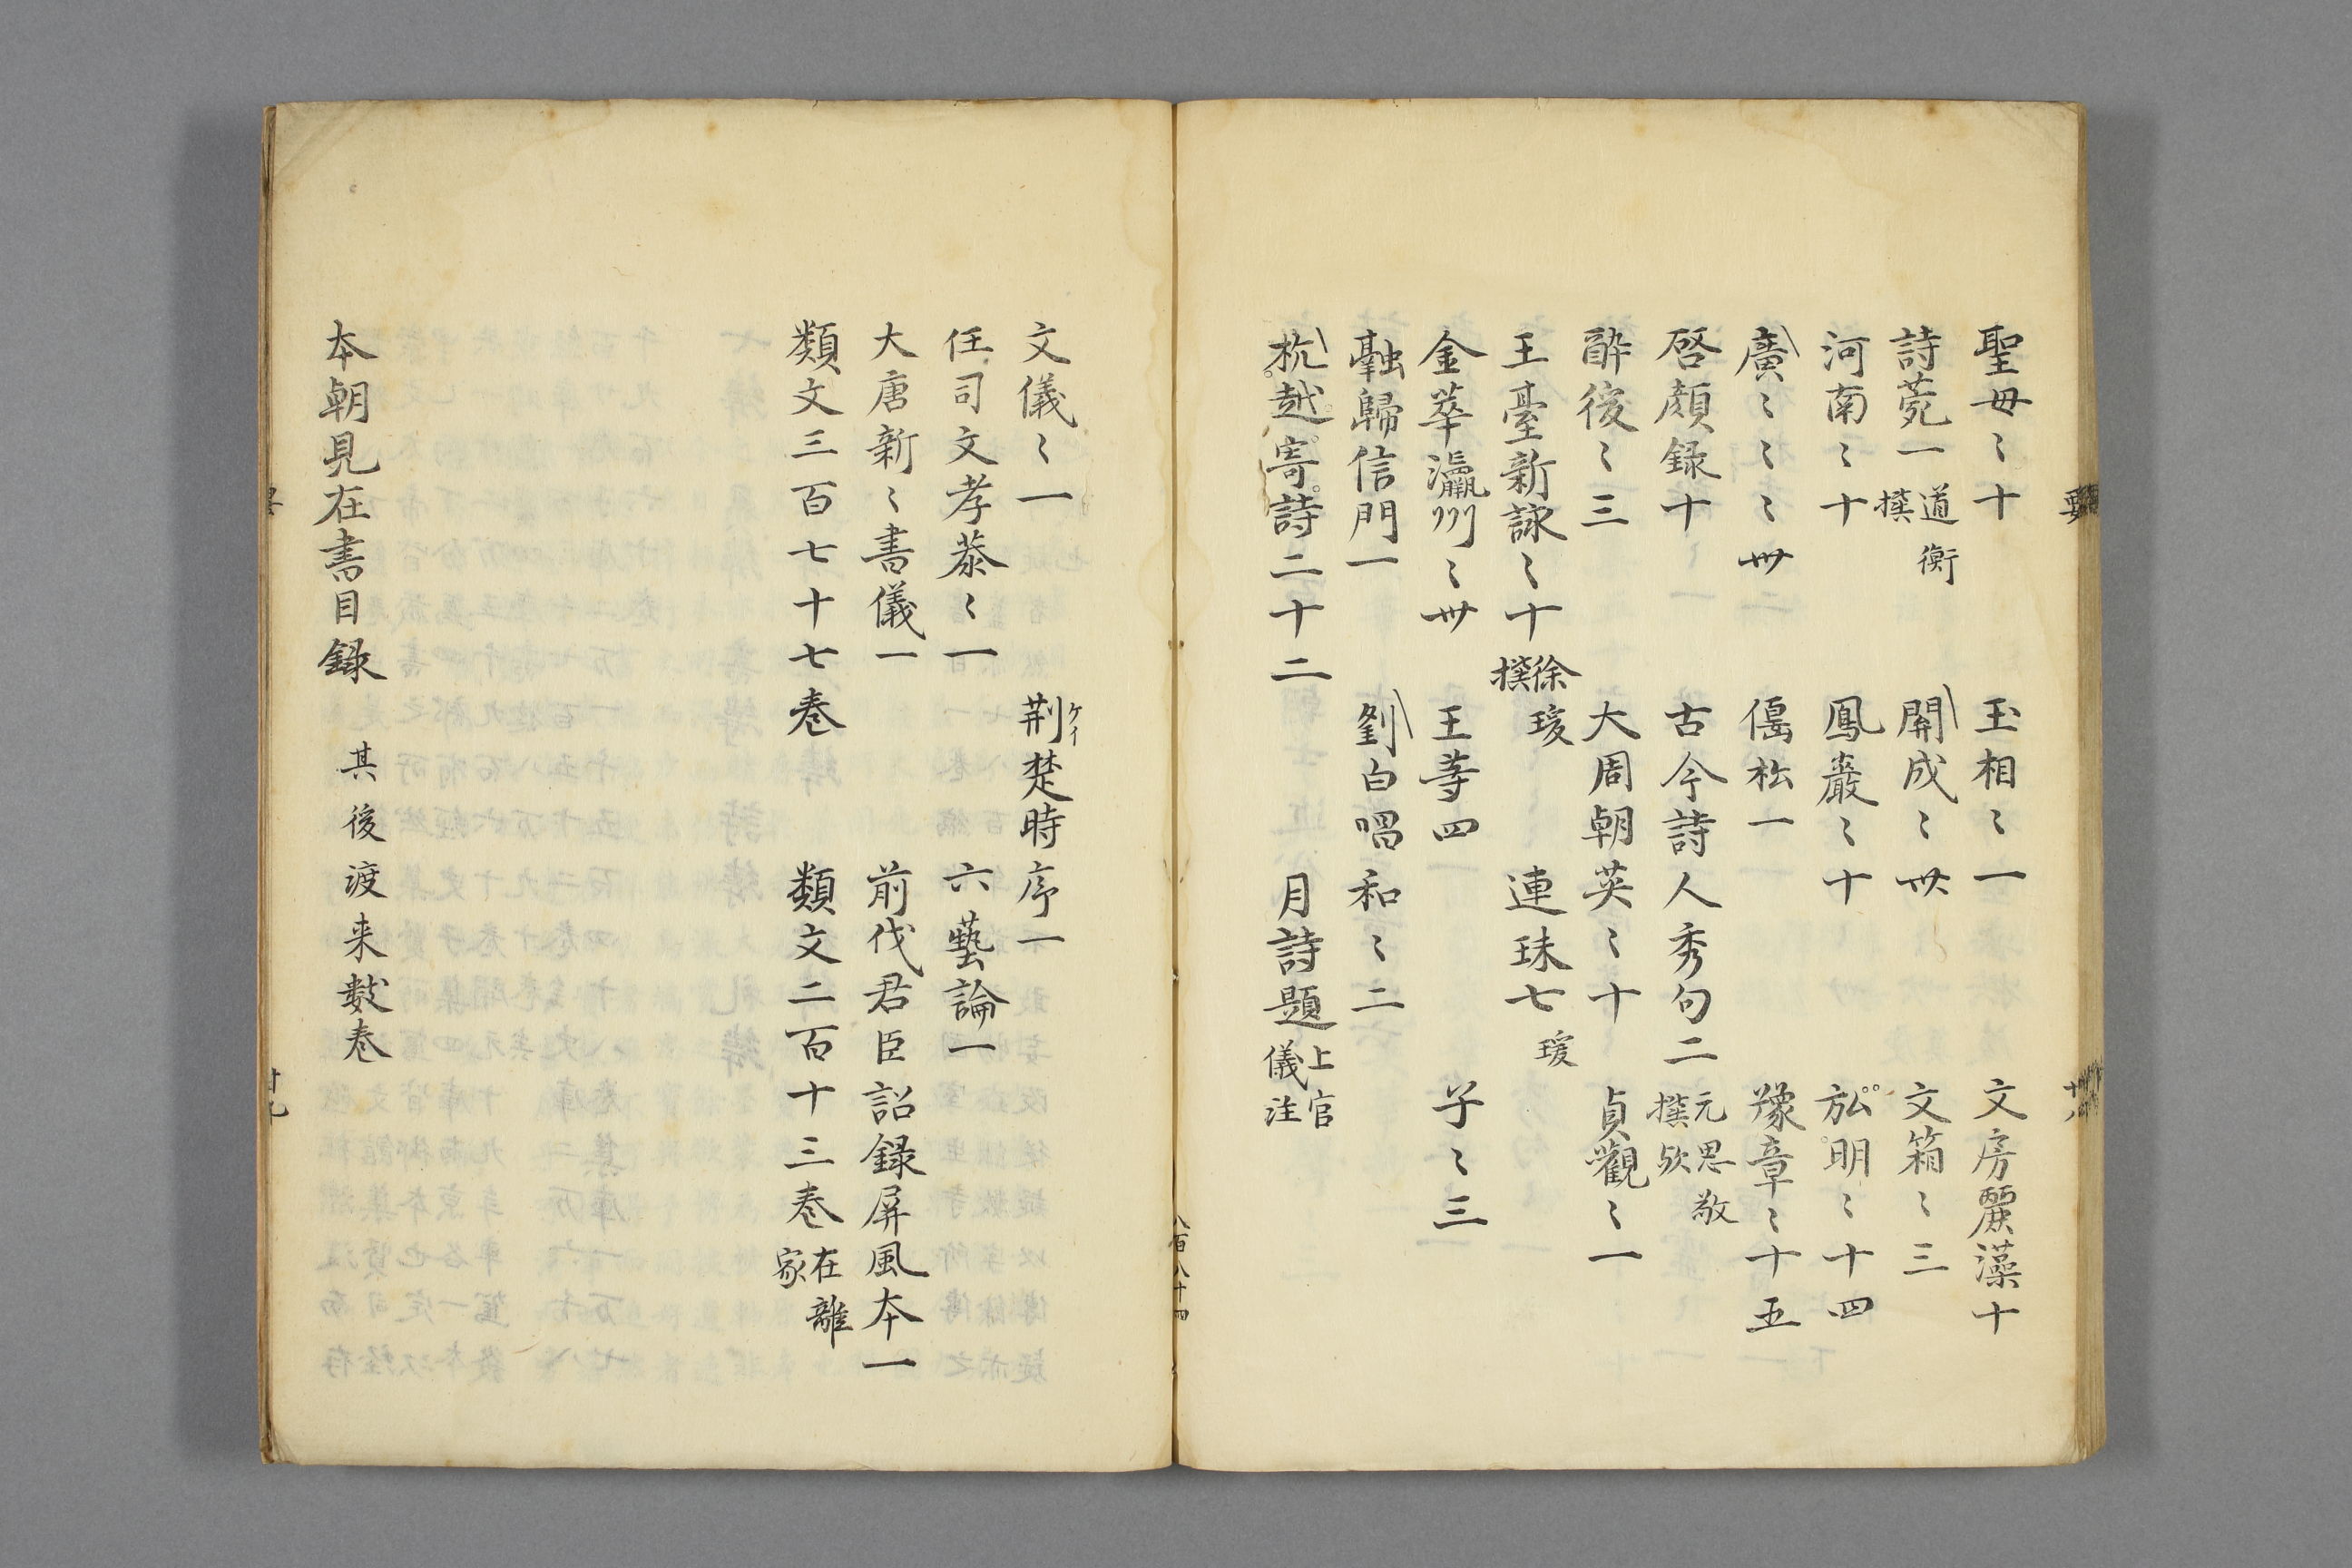 聖毋〻十　玉相〻一　文房麗藻十
詩菀一 道衡撰　開成〻卅　文箱〻三
河南〻十　鳳巖〻十　明〻十四
廣〻〻〻卅　松一　豫章〻十五
啓顔録十　古今詩人秀句二 元思敬撰欤
酔後〻三　大周朝英〻十　貞觀〻一
王臺新詠〻十 徐瑗撰　連珠七 瑗
金萃瀛州〻卅　王䓁四　子〻三
融歸信門一　劉白唱和〻二
杭越寄詩二十二　月詩題 上官儀注
八百八十四
文儀〻一　荆楚時序一
ケイ
任司文孝恭〻一　六藝論一
大唐新〻書儀一　前代君臣詔録屏風本一
類文三百七十七巻　類文二百十三巻 在離家
本朝見在書目録　其後渡来数巻